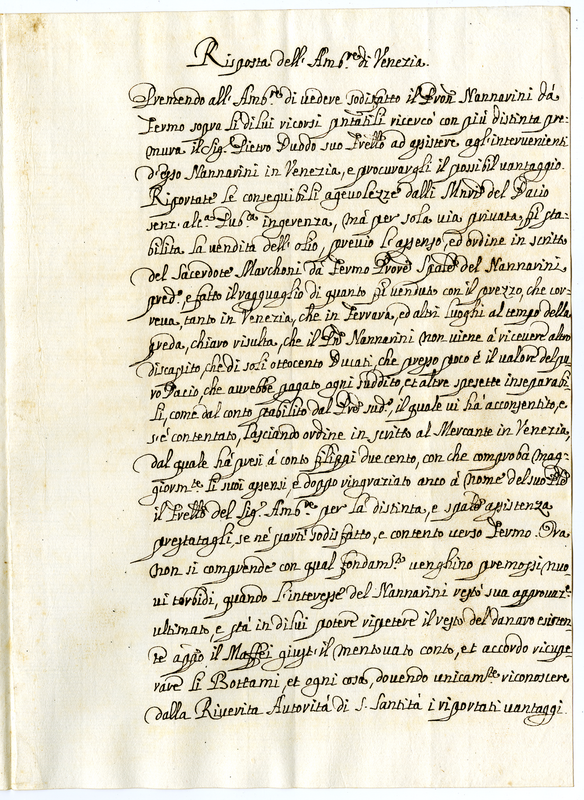 Risposta dell' Amb.re di Venezia.
Premendo all' Amb.re di vedere sodisfatto il Pron Nannarini da
Fermo sopra li di lui ricorsi ricercò con più distinta pre-
mura il Sig.r Pietro Duodo suo Frello ad assistere agl' intervenienti
d'esso Nannarini in Venezia, e procurargli il possibil vantaggio.
Riportate le conseguibili agevolezze dalli del Dacio
senz' alc.a Pub.ca ingerenza, mà per sola via privata, fù sta-
bilita la vendita dell' oglio, previo l'assenso, ed ordine in scritto
del Sacerdote Marchoni da Fermo Prore Spale del Nannarini
pred.o, e fatto il ragguaglio di quanto fù venduto con il prezzo, che cor-
reva, tanto in Venezia, che in Ferrara, ed altri luoghi al tempo della
preda, chiaro risulta, che il Nannarini non viene à ricevere altro
discapito, che di soli ottocento Ducati, che presso poco è il valore del pu-
ro Dacio, che aurebbe pagato ogni suddito, et altre spesette inseparabi-
li, come dal conto stabilito dal Pre sud.o, il quale vi hà acconsentito, e
s'è contentato, lasciando ordine in scritto al Mercante in Venezia,
dal quale hà presi à conto filippi due cento, con che comproba mag-
giorm.te li suoi assensi, e doppo ringratiato anco à nome del suo
il Frello del Sig.r Amb.re per la distinta, e spale assistenza
prestatagli, se nè partì sodisfatto, e contento verso Fermo. Ora
non si comprende con qual fondam.to venghino promossi nuo-
vi torbidi, quando l'interesse del Nannarini restò sua
ultimato, e stà in di lui potere ripetere il resto del danaro esisten-
te il Maffei giust' il mentovato conto, et accordo ricupe-
rare li Bottami, et ogni cosa, dovendo unicam.te riconoscere
dalla Riverita Autorità di S. Santità i riportati vantaggi.